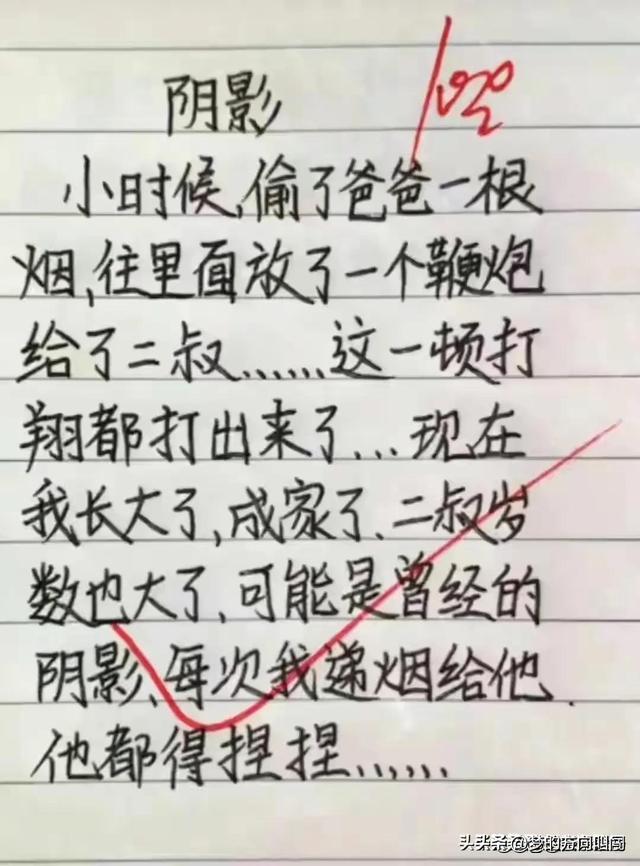 阴影
小时候,偷了爸爸一根
烟,往里面放了一个鞭炮
给了二叔......这一顿打
翔都打出来了...现在
我长大了,成家了、二叔岁
数也大了,可能是曾经的
阴影、每次我递烟给他.
他都得捏捏......